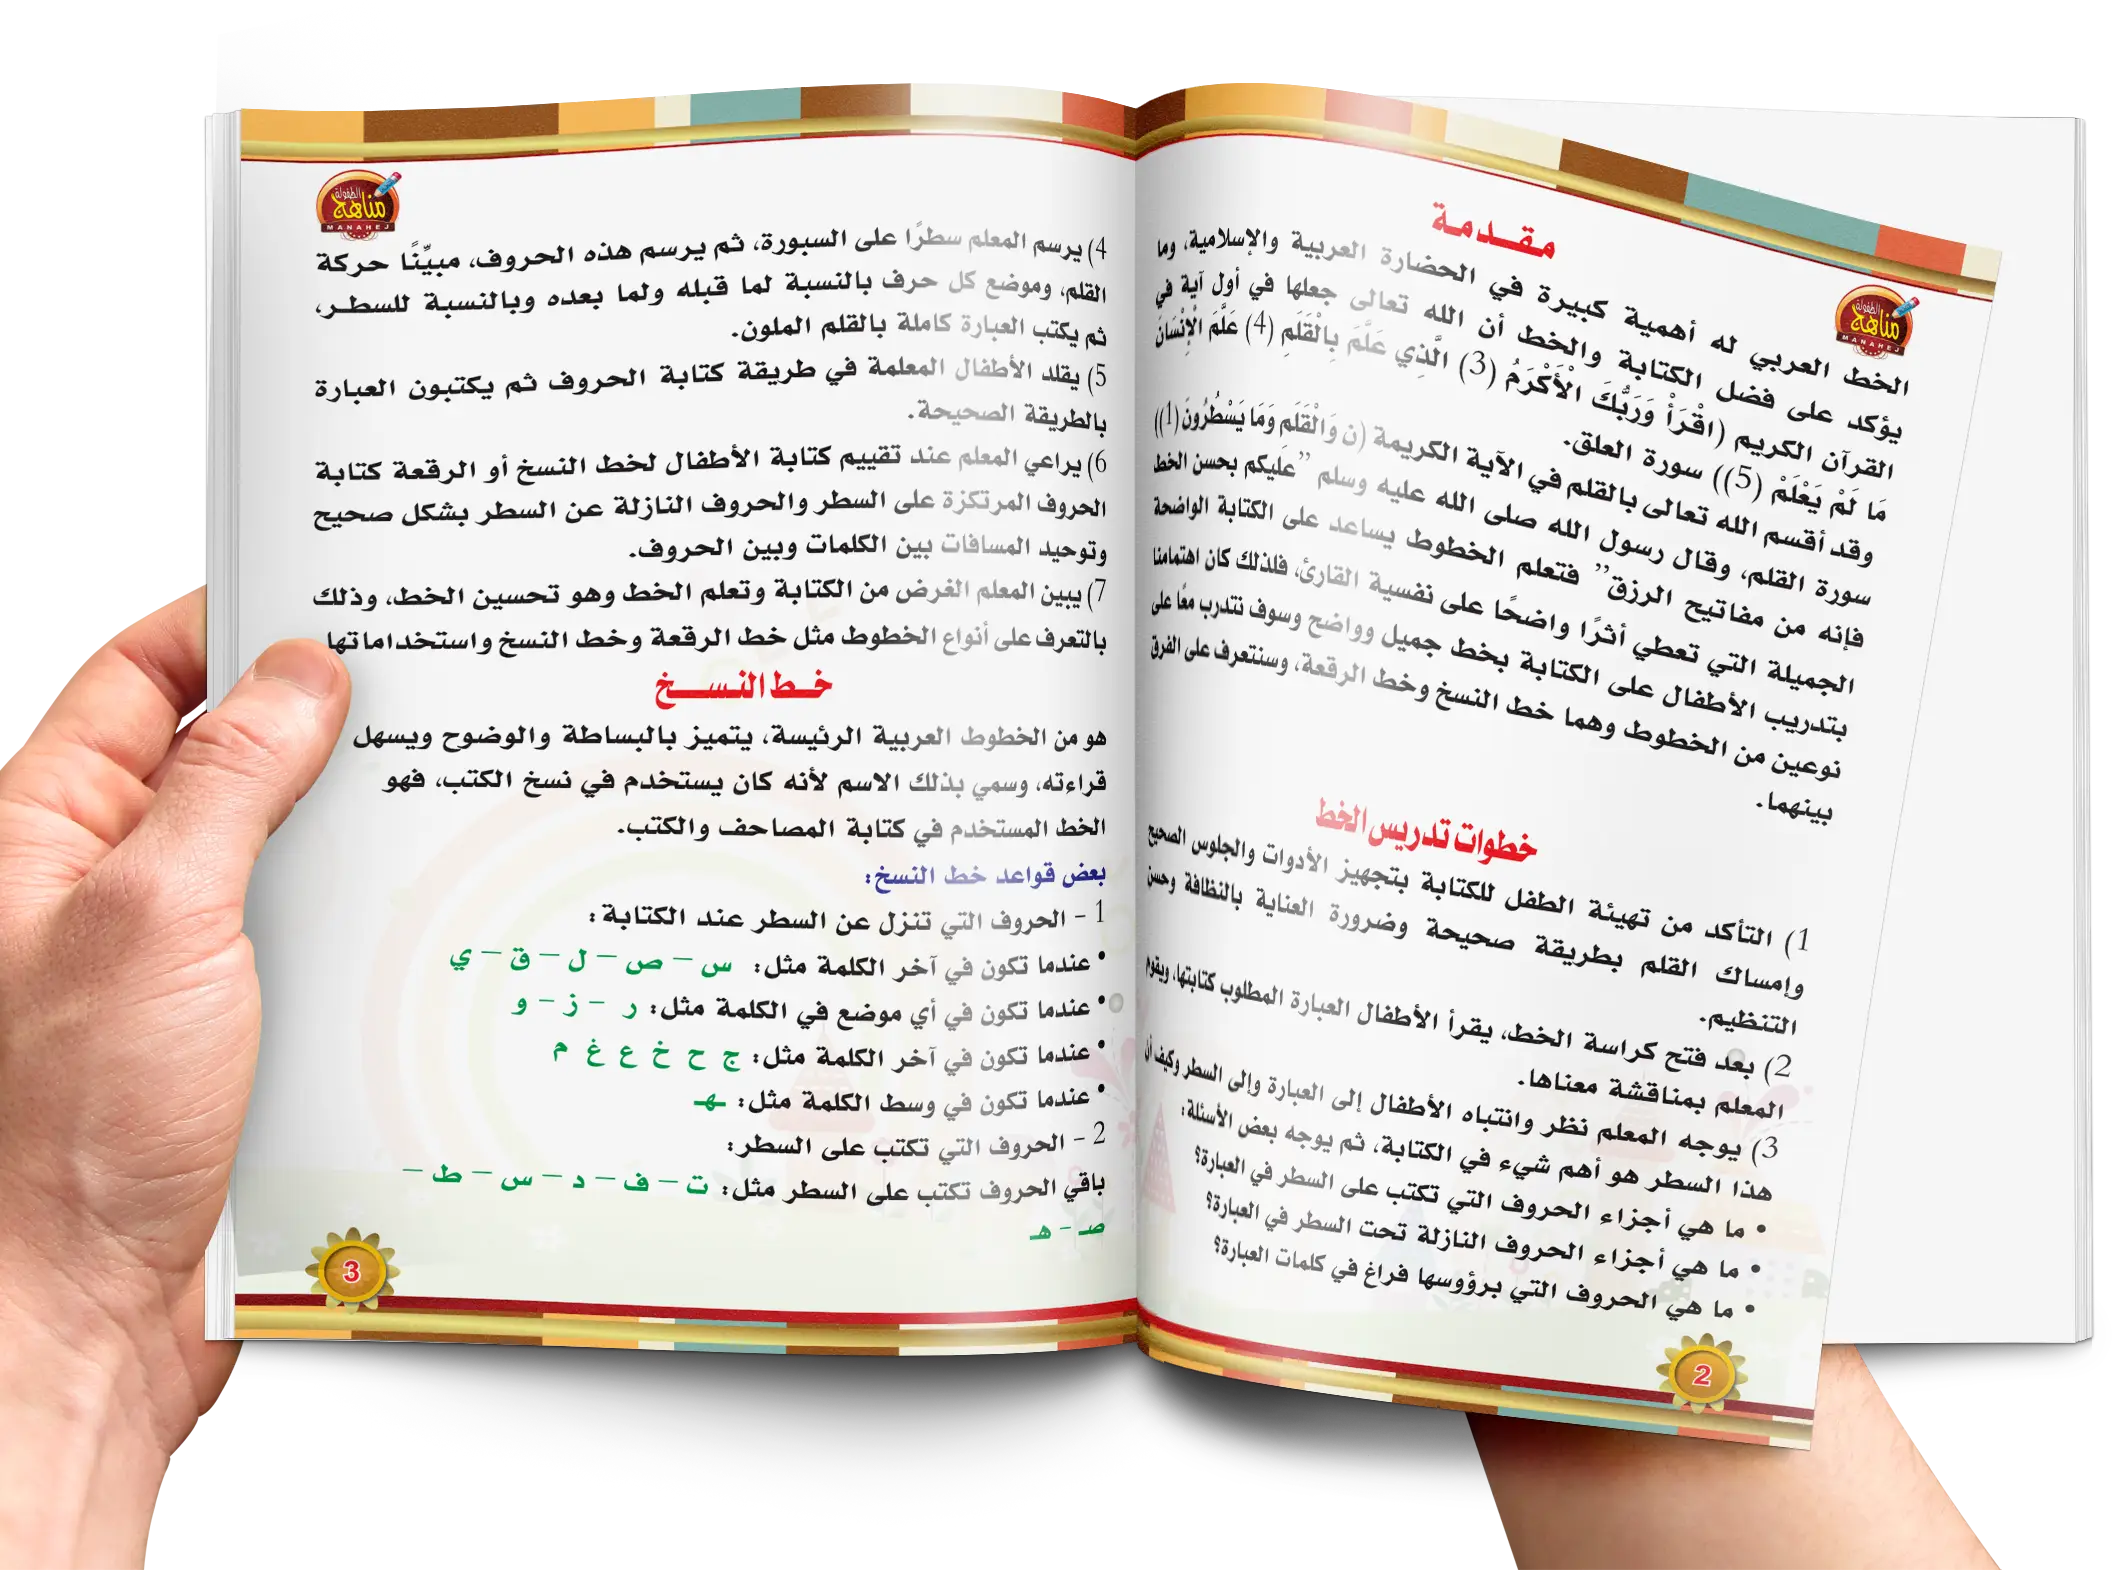 مقدمة
الطفولة
مناهج
MANAHEJ
الخط العربي له أهمية كبيرة في الحضارة العربية والإسلامية، وما
يؤكد على فضل الكتابة والخط أن الله تعالى جعلها في أول آية في
القرآن الكريم (اقْرَأْ وَرَبُّكَ الْأَكْرَمُ (3) الَّذِي عَلَّمَ بِالْقَلَمِ (4) عَلَّمَ الْإِنْسَانَ
مَا لَمْ يَعْلَمْ (5)) سورة العلق.
وقد أقسم الله تعالى بالقلم في الآية الكريمة (ن وَالْقَلَمِ وَمَا يَسْطُرُونَ (1))
سورة القلم، وقال رسول الله صلى الله عليه وسلم "عليكم بحسن الخط
فإنه من مفاتيح الرزق" فتعلم الخطوط يساعد على الكتابة الواضحة
الجميلة التي تعطي أثرًا واضحًا على نفسية القارئ، فلذلك كان اهتمامنا
بتدريب الأطفال على الكتابة بخط جميل وواضح وسوف نتدرب معًا على
نوعين من الخطوط وهما خط النسخ وخط الرقعة، وسنتعرف على الفرق
بينهما.
خطوات تدريس الخط
1) التأكد من تهيئة الطفل للكتابة بتجهيز الأدوات والجلوس الصحيح
وإمساك القلم بطريقة صحيحة وضرورة العناية بالنظافة وحسن
التنظيم.
2) بعد فتح كراسة الخط، يقرأ الأطفال العبارة المطلوب كتابتها، ويقوم
المعلم بمناقشة معناها.
3) يوجه المعلم نظر وانتباه الأطفال إلى العبارة وإلى السطر وكيف أن
هذا السطر هو أهم شيء في الكتابة، ثم يوجه بعض الأسئلة:
• ما هي أجزاء الحروف التي تكتب على السطر في العبارة؟
• ما هي أجزاء الحروف النازلة تحت السطر في العبارة؟
• ما هي الحروف التي برؤوسها فراغ في كلمات العبارة؟
2
الطفولة
مناهج
MANAHEJ
4) يرسم المعلم سطرًا على السبورة، ثم يرسم هذه الحروف، مبيِّنًا حركة
القلم، وموضع كل حرف بالنسبة لما قبله ولما بعده وبالنسبة للسطر،
ثم يكتب العبارة كاملة بالقلم الملون.
5) يقلد الأطفال المعلمة في طريقة كتابة الحروف ثم يكتبون العبارة
بالطريقة الصحيحة.
6) يراعي المعلم عند تقييم كتابة الأطفال لخط النسخ أو الرقعة كتابة
الحروف المرتكزة على السطر والحروف النازلة عن السطر بشكل صحيح
وتوحيد المسافات بين الكلمات وبين الحروف.
7) يبين المعلم الغرض من الكتابة وتعلم الخط وهو تحسين الخط، وذلك
بالتعرف على أنواع الخطوط مثل خط الرقعة وخط النسخ واستخداماتها
خط النسخ
هو من الخطوط العربية الرئيسة، يتميز بالبساطة والوضوح ويسهل
قراءته، وسمي بذلك الاسم لأنه كان يستخدم في نسخ الكتب، فهو
الخط المستخدم في كتابة المصاحف والكتب.
بعض قواعد خط النسخ:
1 - الحروف التي تنزل عن السطر عند الكتابة:
• عندما تكون في آخر الكلمة مثل: س – ص – ل – ق – ي
• عندما تكون في أي موضع في الكلمة مثل: ر – ز – و
• عندما تكون في آخر الكلمة مثل: ج ح خ ع غ م
• عندما تكون في وسط الكلمة مثل: ـهـ
2 - الحروف التي تكتب على السطر:
باقي الحروف تكتب على السطر مثل: ت – ف – د – س – ط –
صـ - هـ
3